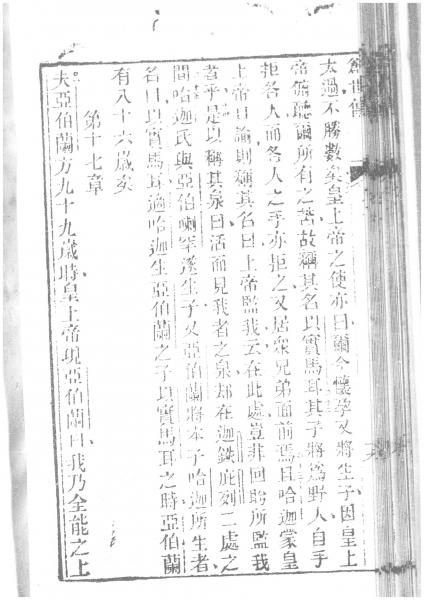 創世傳
太過不勝數矣皇上帝之使亦曰爾今懷孕又將生子因皇上
帝俯聽爾所有之苦故稱其名以實馬耳其子將爲野人自手
拒各人而各人之手亦拒之又居衆兄弟面前焉且哈迦蒙皇
上帝曰諭則稱其名曰上帝監我云在此處豈非回盻所監我
者乎是以稱其泉曰活而見我者之泉却在迦鉄庇刻二處之
間哈迦氏與亞伯喇罕遂生子又亞伯蘭將本子哈迦所生者
名曰以實馬耳適哈迦生亞伯蘭之子以實馬耳之時亞伯蘭
有八十六歲矣
第十七章
夫亞伯蘭方九十九歲時皇上帝現亞伯蘭曰我乃全能之上